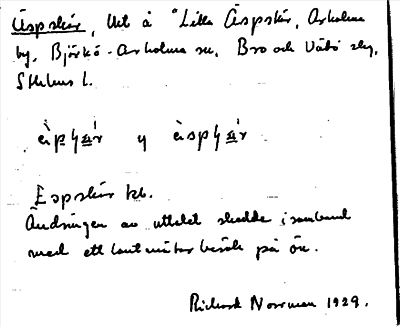 Äspskär, Utl å "Lilla Äspskär, Arholma
by, Björkö-Arholma sn, Bro och Vätö skg,
Sthlms l.
y
Espskär kb.
Ändringen av uttalet skedde i samband
med ett lantmätarbesök på ön.
Richard Norrman 1929.